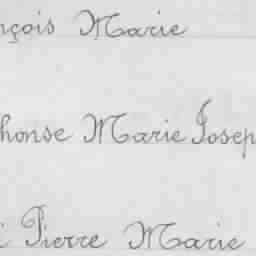 nçois Marie
honse Marie Josep
i Pierre Marie